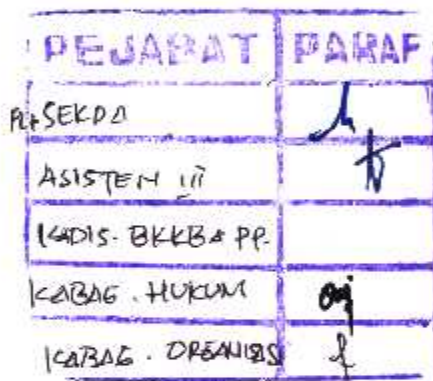 PEJABAT PARAF
Plt SEKDA
ASISTEN III
KADIS. BKKB & PP.
KABAG. HUKUM
KABAG. ORGANISASI